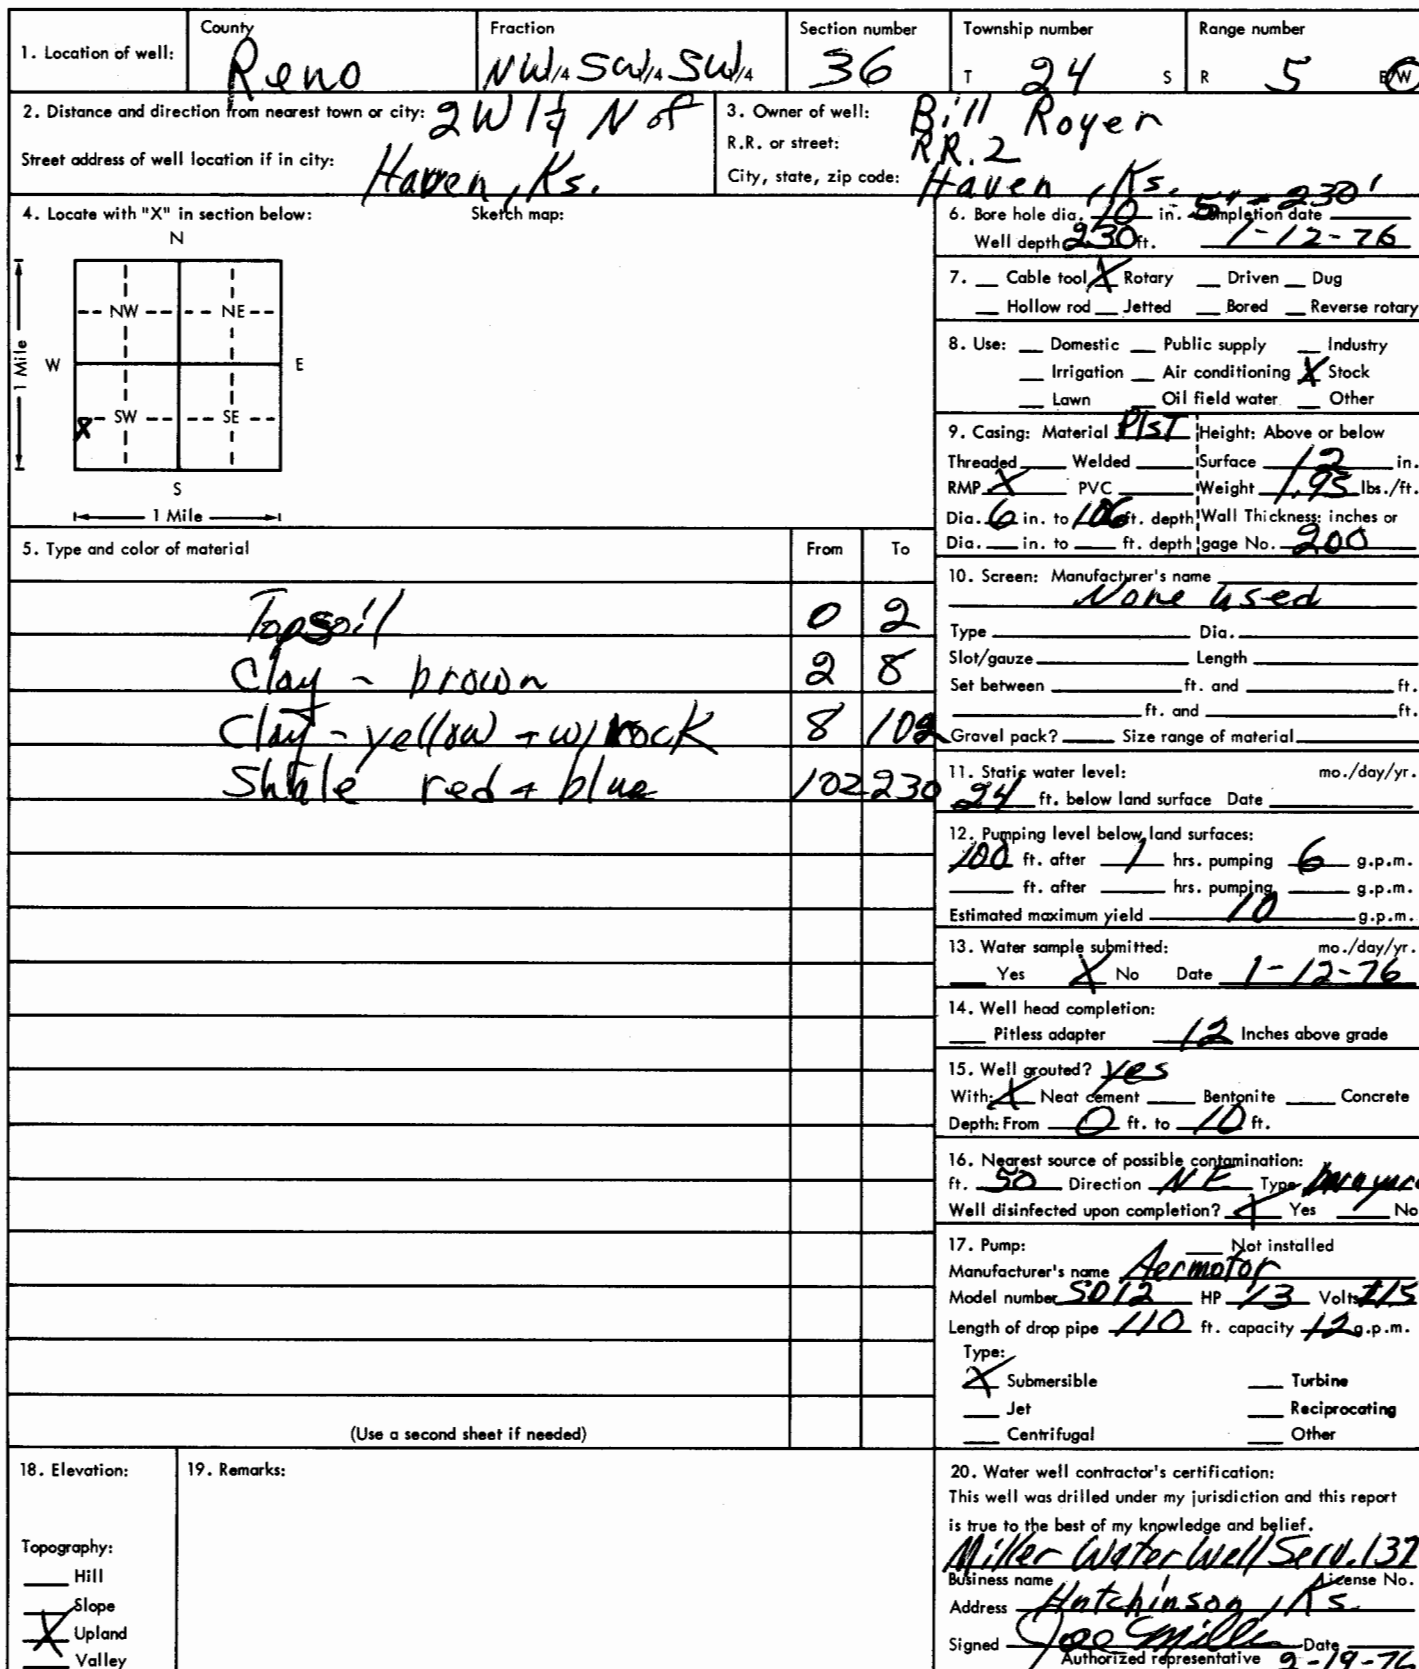 1. Location of well: County Reno Fraction NW 1/4 SW 1/4 SW 1/4 Section number 36 Township number T 24 S Range number R 5 E/W
2. Distance and direction from nearest town or city: 2W 1/4 N of
Street address of well location if in city: Haven, Ks.
3. Owner of well: Bill Royer
R.R. or street: R.R. 2
City, state, zip code: Haven, Ks.
4. Locate with "X" in section below: Sketch map:
N
NW NE
W E
1 Mile
X SW SE
S
1 Mile
5. Type and color of material From To
Topsoil 0 2
Clay - brown 2 8
Clay - yellow + w/rock 8 102
Shale red + blue 102 230
(Use a second sheet if needed)
6. Bore hole dia. 10 in. Completion date 5" - 230'
Well depth 230 ft. 1-12-76
7. Cable tool X Rotary Driven Dug
Hollow rod Jetted Bored Reverse rotary
8. Use: Domestic Public supply Industry
Irrigation Air conditioning X Stock
Lawn Oil field water Other
9. Casing: Material PlsT Height: Above or below
Threaded Welded Surface 12 in.
RMP X PVC Weight 1.95 lbs./ft.
Dia. 6 in. to 106 ft. depth Wall Thickness: inches or
Dia. in. to ft. depth gage No. 200
10. Screen: Manufacturer's name
None used
Type Dia.
Slot/gauze Length
Set between ft. and ft.
ft. and ft.
Gravel pack? Size range of material
11. Static water level: mo./day/yr.
24 ft. below land surface Date
12. Pumping level below land surfaces:
100 ft. after 1 hrs. pumping 6 g.p.m.
ft. after hrs. pumping g.p.m.
Estimated maximum yield 10 g.p.m.
13. Water sample submitted: mo./day/yr.
Yes X No Date 1-12-76
14. Well head completion:
Pitless adapter 12 Inches above grade
15. Well grouted? yes
With: X Neat cement Bentonite Concrete
Depth: From 0 ft. to 10 ft.
16. Nearest source of possible contamination:
ft. 50 Direction NE Type
Well disinfected upon completion? X Yes No
17. Pump: Not installed
Manufacturer's name Aermotor
Model number SD12 HP 1/3 Volts 115
Length of drop pipe 110 ft. capacity 12 g.p.m.
Type:
X Submersible Turbine
Jet Reciprocating
Centrifugal Other
18. Elevation:
Topography:
Hill
Slope
X Upland
Valley
19. Remarks:
20. Water well contractor's certification:
This well was drilled under my jurisdiction and this report
is true to the best of my knowledge and belief.
Miller Water Well Serv. 137
Business name License No.
Address Hutchinson, Ks.
Signed Joe Miller Date
Authorized representative 2-19-76